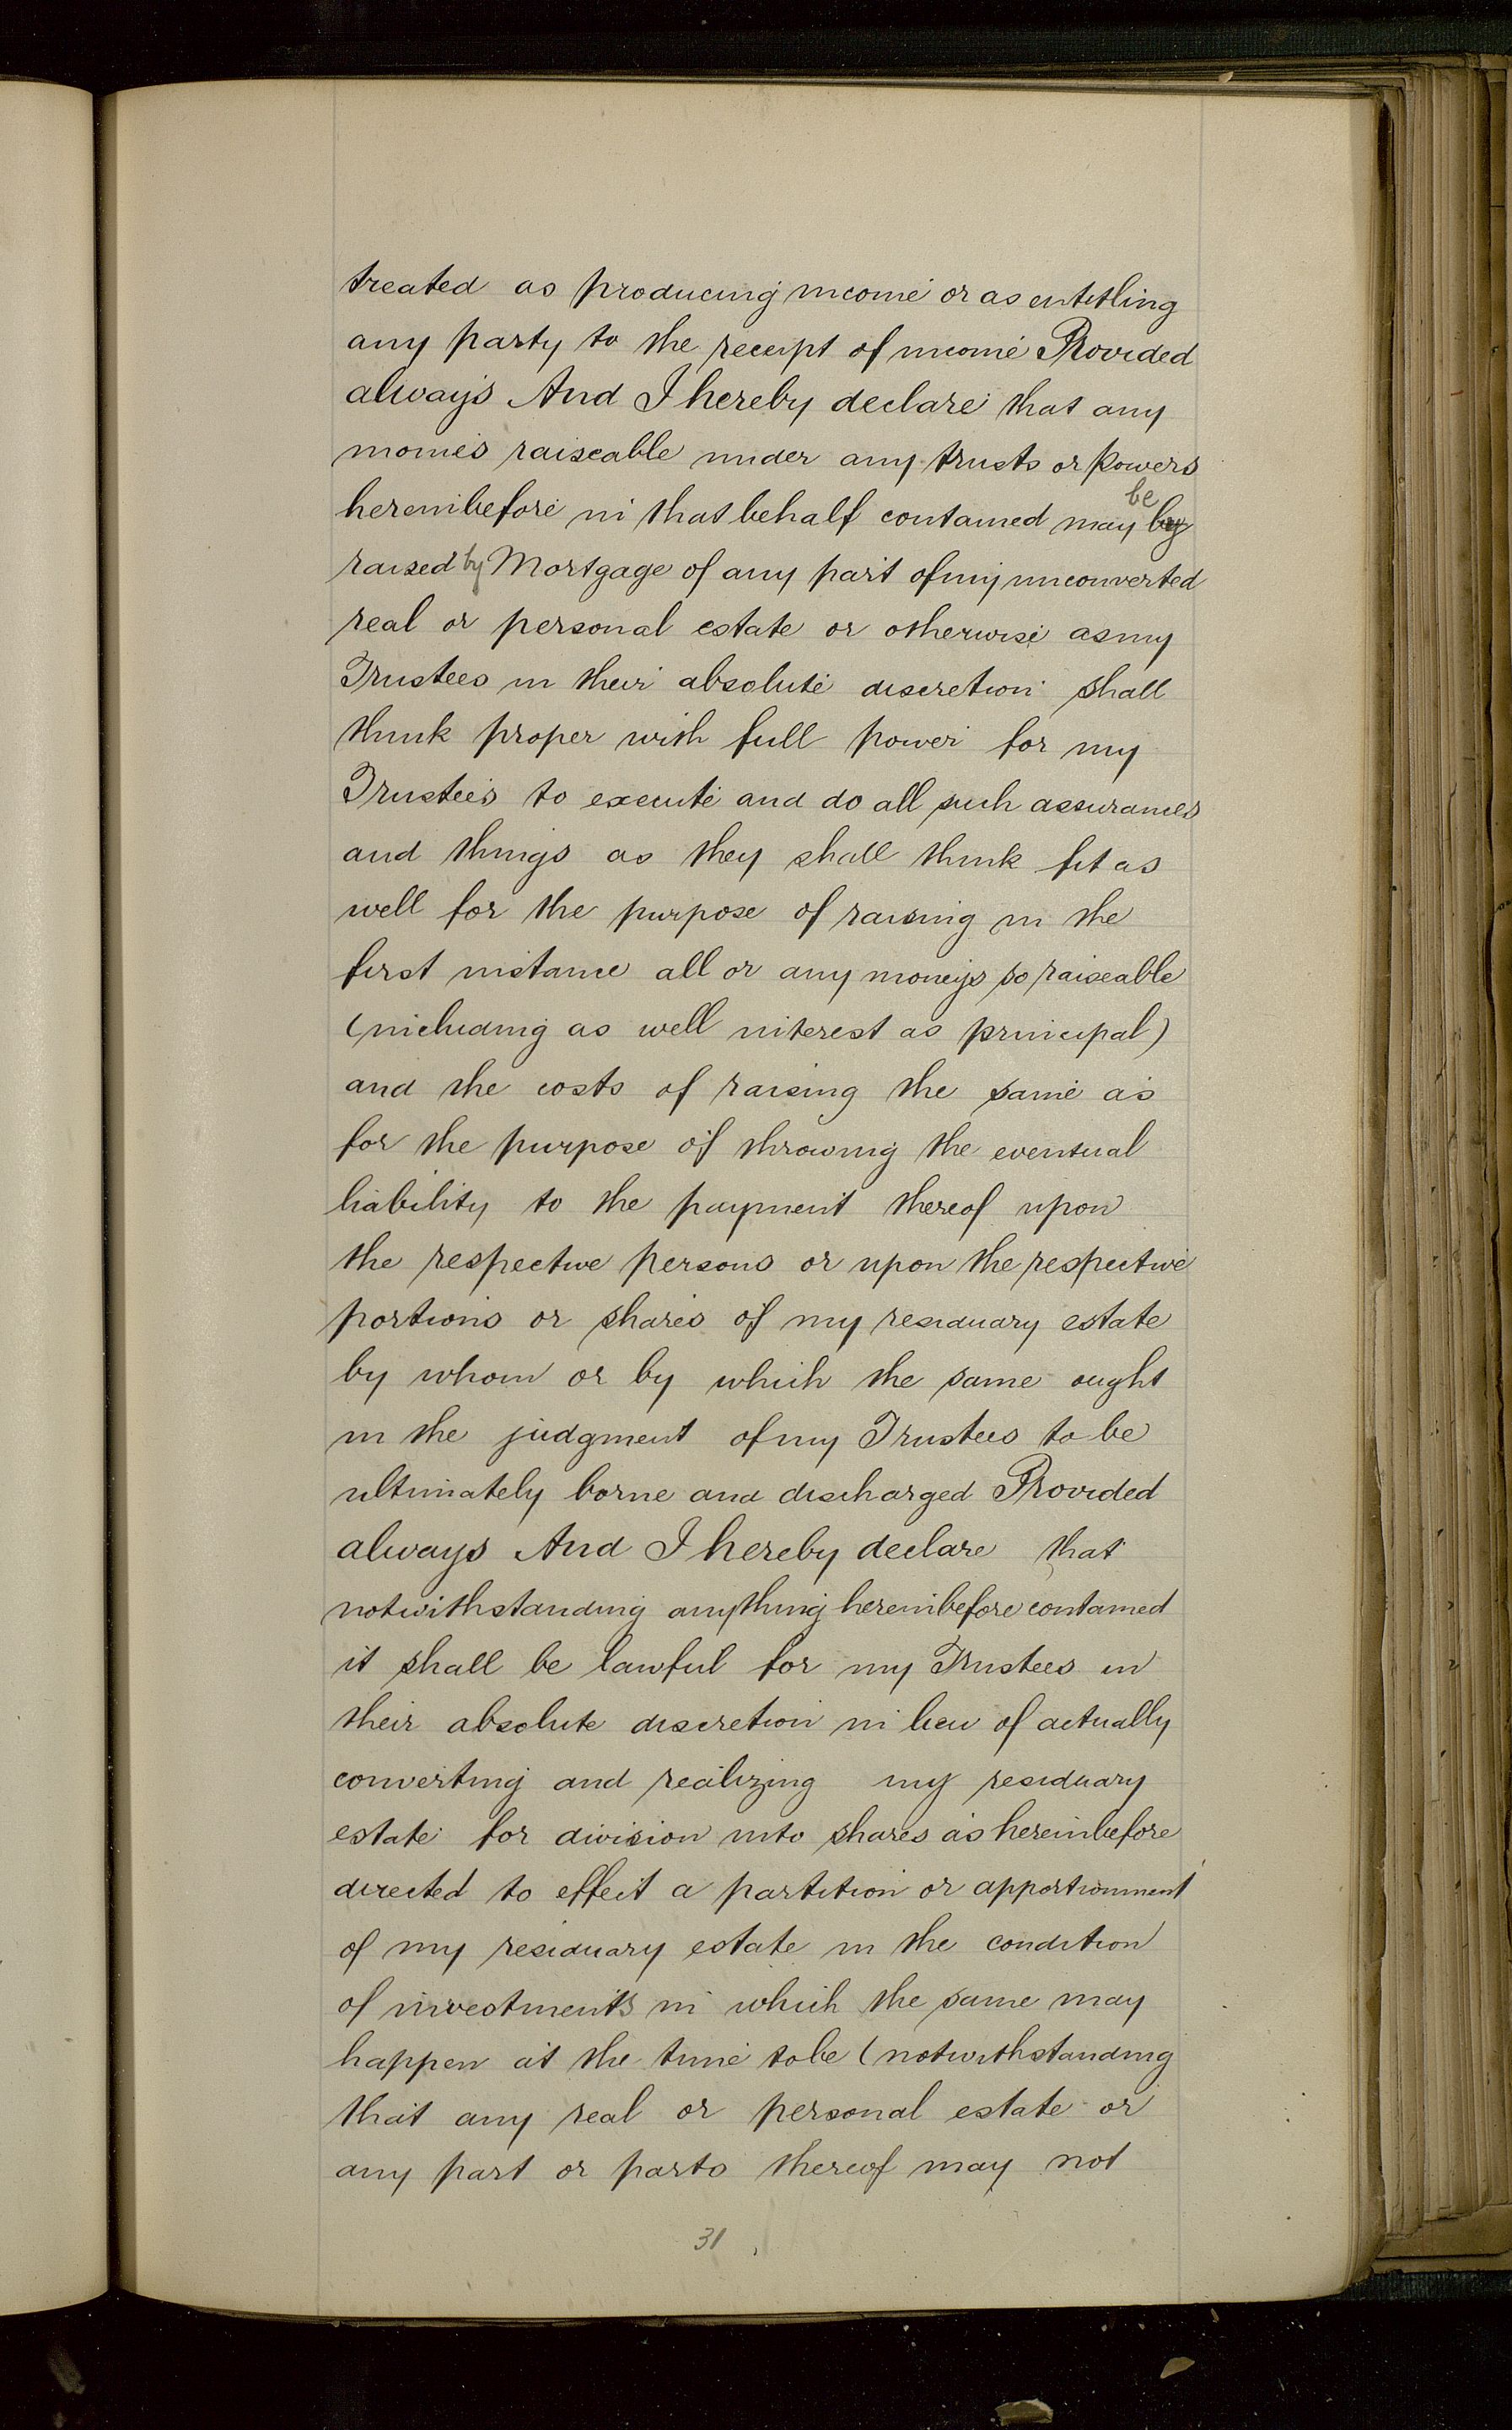 treated as producing income or as entitling
any party to the receipt of income Provided
always And I hereby declare that any
monies raiseable under any trusts or powers
hereinbefore in that behalf contained may be by
raised by Mortgage of any part of my unconverted
real or personal estate or otherwise as my
Trustees in their absolute discretion shall
think proper with full power for my
Trustees to execute and do all such assurances
and things as they shall think fit as
well for the purpose of raising in the
first instance all or any moneys so raiseable
(including as well interest as principal)
and the costs of raising the same as
for the purpose of throwing the eventual
liability to the payment thereof upon
the respective persons or upon the respective
portions or shares of my residuary estate
by whom or by which the same ought
in the judgment of my Trustees to be
ultimately borne and discharged Provided
always And I hereby declare that
notwithstanding anything hereinbefore contained
it shall be lawful for my Trustees in
their absolute discretion in lieu of actually
converting and realizing my residuary
estate for division into shares as hereinbefore
directed to effect a partition or apportionment
of my residuary estate in the condition
of investments in which the same may
happen at the time to be (notwithstanding
that any real or personal estate or
any part or parts thereof may not
31